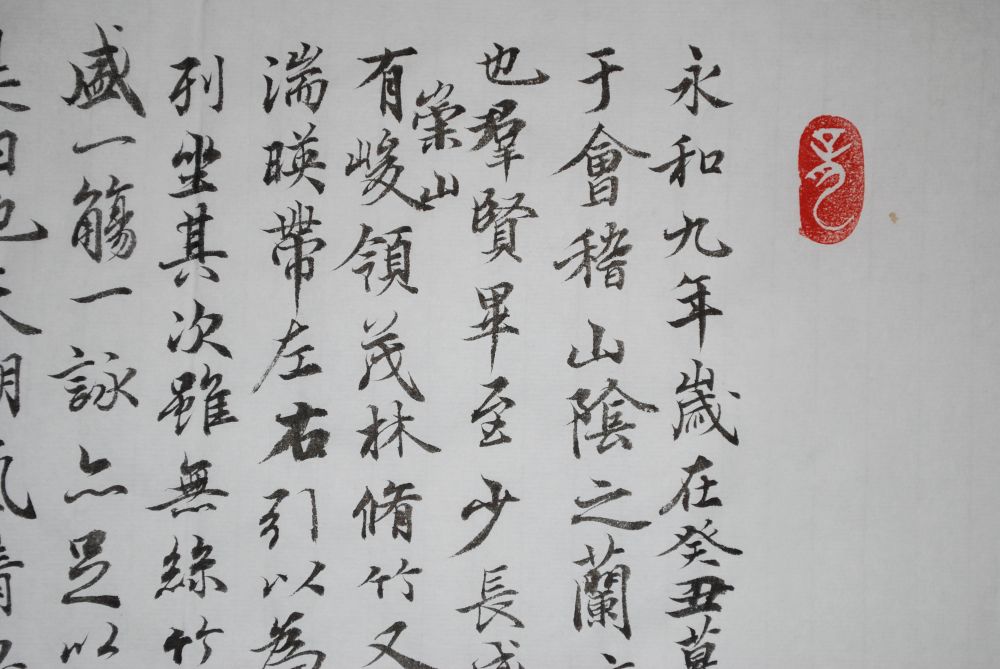 永和九年歲在癸丑暮
于會稽山陰之蘭
也群賢畢至少長咸
有崇山峻領茂林脩竹又
湍暎帶左右引以為
列坐其次雖無絲竹
盛一觴一詠亦足以
也天朗氣清